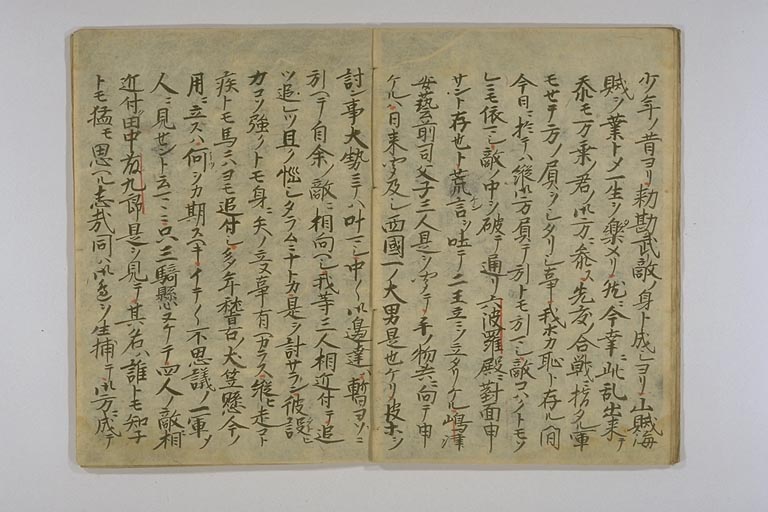 少年ノ昔ヨリ勅勘武敵ノ身ト成シヨリ山賊海
賊ヲ業トメ一生ヲ樂メリ然ニ今幸ニ此乱出来テ
忝モ万乗ノ君ノ御方ニ参ス先度ノ合戦ニ指タル軍
モセテ御方ノ負ヲシタリシ事我ホカ恥ト存シ間
今日ニ於テハ縦御方負テ引トモ引マシ敵コハクトモソ
レニモ依マシ敵ノ中ヲ破テ通リ六波羅殿ニ對面申
サント存也ト荒言ヲ吐テ二王立ニソ立タリケル嶋津
安藝前司父子三人是ヲ聞テ手ノ物共ニ向テ申
ケルハ日来聞及シ西國一ノ大男是也ケリ彼ホヲ
討ン事大勢ニテハ叶マシ中〱御邊達ハ暫ヨソニ
引ヘテ自余ノ敵ニ相向ヘシ我等三人相近付テ追
ツ追レツ且ク悩シタランニナトカ是ヲ討サラン彼設
カコソ強クトモ身ニ矢ノ立ヌ事有ヘカラス縦ヒ走コト
疾トモ馬ニハヨモ追付シ多年稽古ノ犬笠懸今ノ
用ニ立スハ何ヲカ期スヘキイテ〱不思議ノ一軍ソ
人ニ見セント云マヽニ只三騎懸ヌケテ四人ノ敵ニ相
近付田中藤九郎是ヲ見テ其名ハ誰トモ知子
トモ猛モ思ヘル志哉同ハ御邊ヲ生捕テ御方ニ成テ